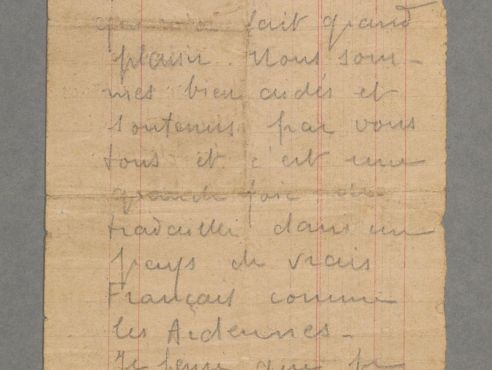 qui m'a fait grand
plaisir. Nous som-
mes bien aidés et
soutenus par vous
tous et c'est une
grande joie de
travailler dans un
pays de vrais
Français comme
les Ardennes.
Je pense que je